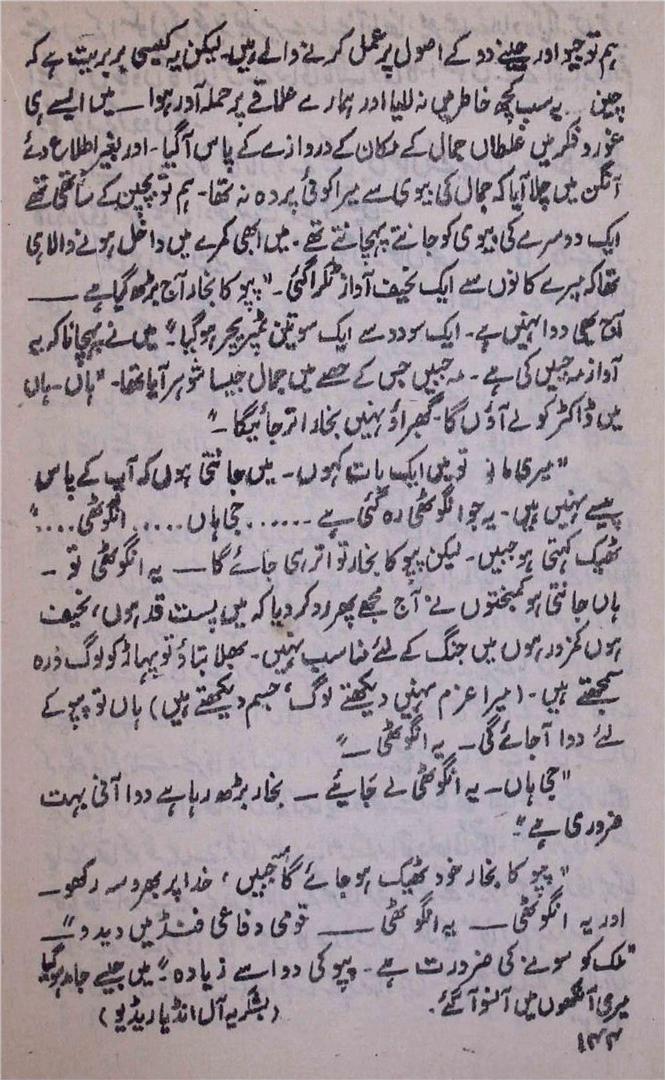 ہم تو جیو اور جینے دو کے اصول پر عمل کرنے والے ہیں۔ لیکن یہ کیسی بربریت ہے کہ
چین یہ سب کچھ خاطر میں نہ لایا اور ہمارے علاقے پر حملہ آور ہوا — میں ایسے ہی
غور و فکر میں غلطاں جمال کے مکان کے دروازے کے پاس آگیا۔ اور بغیر اطلاع دئے
آنگن میں چلا آیا کہ جمال کی بیوی سے میرا کوئی پردہ نہ تھا۔ ہم تو بچپن کے ساتھی تھے
ایک دوسرے کی بیوی کو جانتے پہچانتے تھے۔ میں ابھی کمرے میں داخل ہونے والا ہی
تھا کہ میرے کانوں سے ایک نحیف آواز ٹکرا گئی۔ "پپو کا بخار آج بڑھ گیا ہے —
آج بھی دوا نہیں ہے۔ ایک سو دو سے ایک سو تین ٹمپریچر ہو گیا"۔ میں نے پہچانا کہ یہ
آواز مہ جبیں کی ہے۔ مہ جبیں جس کے حصے میں جمال جیسا شوہر آیا تھا۔ "ہاں۔ ہاں
میں ڈاکٹر کو لے آؤں گا۔ گھبراؤ نہیں بخار اتر جائیگا۔"
"میری مانو تو میں ایک بات کہوں۔ میں جانتی ہوں کہ آپ کے پاس
پیسے نہیں ہیں۔ یہ جو انگوٹھی رہ گئی ہے ...... جی ہاں ..... انگوٹھی ...."
ٹھیک کہتی ہو جبیں۔ لیکن پپو کا بخار تو اتر ہی جائے گا — یہ انگوٹھی تو ۔
ہاں جانتی ہو کمبختوں نے آج مجھے پھر رد کر دیا کہ میں پست قد ہوں، نحیف
ہوں کمزور ہوں میں جنگ کے لئے مناسب نہیں۔ بھلا بتاؤ تو پہاڑ کو لوگ ذرہ
سمجھتے ہیں۔ (میرا عزم نہیں دیکھتے لوگ، جسم دیکھتے ہیں) ہاں تو پپو کے
لئے دوا آجائے گی۔ یہ انگوٹھی —"
"جی ہاں۔ یہ انگوٹھی لے جایئے — بخار بڑھ رہا ہے دوا آنی بہت
ضروری ہے"۔
"پپو کا بخار خود ٹھیک ہو جائے گا جبیں، خدا پر بھروسہ رکھو۔
اور یہ انگوٹھی — یہ انگوٹھی — قومی دفاعی فنڈ میں دیدو" —
"ملک کو سونے کی ضرورت ہے۔ پپو کی دوا سے زیادہ"۔ میں جیسے جامد ہو گیا
میری آنکھوں میں آنسو آگئے۔ (بشکریہ آل انڈیا ریڈیو)